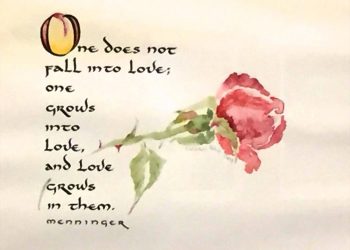 One does not
fall into love;
one
grows
into
love,
and love
grows
in them.
MENNINGER